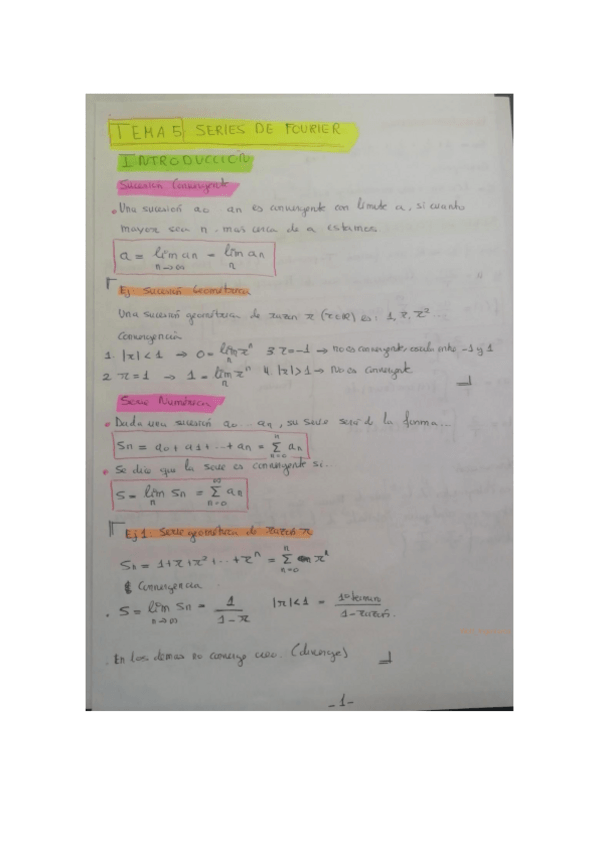 TEMA 5 SERIES DE FOURIER
INTRODUCCIÓN
Sucesión Convergente
• Una sucesión a0... an es convergente con límite a, si cuanto
mayor sea n, mas cerca de a estamos.
a = lim an = lim an
n→∞ n
Ej: Sucesión Geométrica
Una sucesión geométrica de razon r (r∈ℝ) es: 1, r, r²...
Convergencia
1. |r| < 1 → 0 = lim rⁿ 3. r = -1 → no es convergente, oscila entre -1 y 1
n
2. r = 1 → 1 = lim rⁿ 4. |r| > 1 → No es convergente
n
Serie Numérica
• Dada una sucesión a0 ... an, su serie será de la forma...
Sn = a0 + a1 + ... + an = Σ an
n=0
• Se dice que la serie es convergente si...
S = lim Sn = Σ an
n n=0 ∞
Ej 1: Serie geométrica de razón r
Sn = 1 + r + r² + ... + rⁿ = Σ rⁿ
n=0
Convergencia
. S = lim Sn = 1/(1-r) |r| < 1 = 1º termino/(1-razón).
n→∞
. En los demas no converge (diverge)
-1-